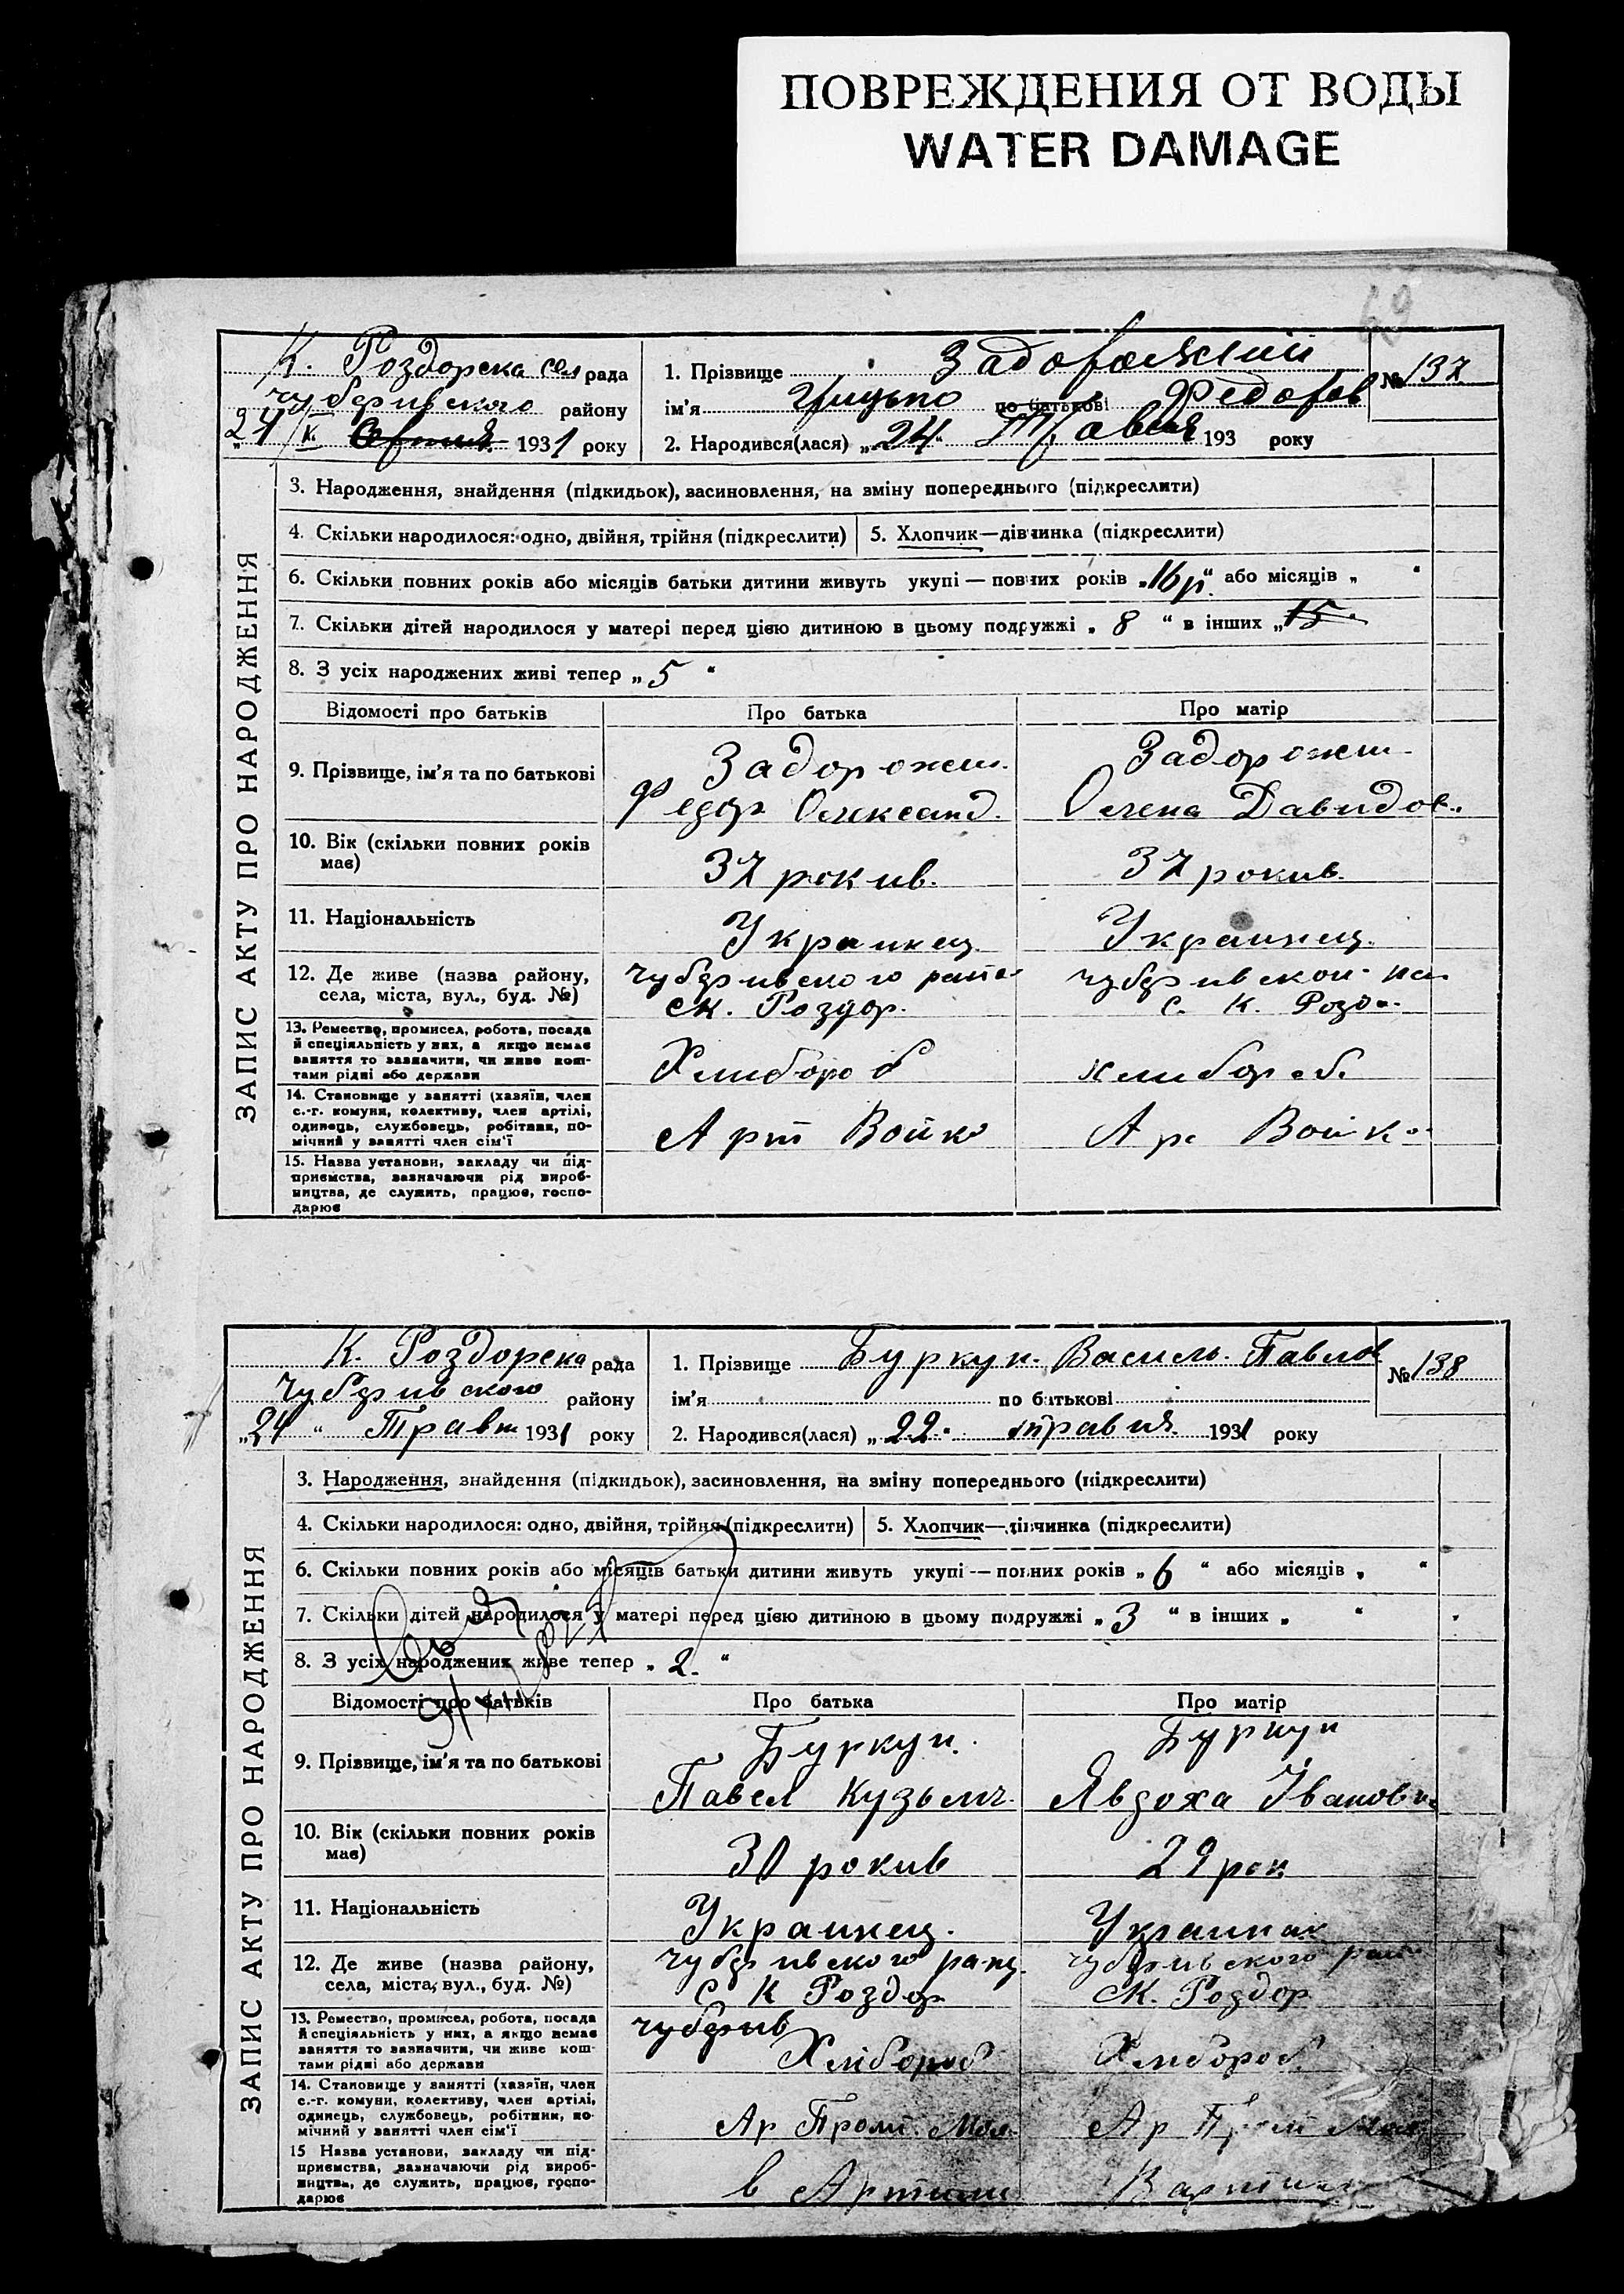 ПОВРЕЖДЕНИЯ ОТ ВОДЫ
WATER DAMAGE
69
К. Роздорска сел рада
Чубаривского району
„24/V. 1931 року
1. Прізвище Задорожний
ім'я Грицько по батькові Федоров
№ 137
2. Народився(лася) „24“ Травня 193 року
ЗАПИС АКТУ ПРО НАРОДЖЕННЯ
3. Народження, знайдення (підкидьок), засиновлення, на зміну попереднього (підкреслити)
4. Скільки народилося: одно, двійня, трійня (підкреслити) 5. Хлопчик—дівчинка (підкреслити)
6. Скільки повних років або місяців батьки дитини живуть укупі — повних років „16р“ або місяців „ “
7. Скільки дітей народилося у матері перед цією дитиною в цьому подружжі „ 8 “ в інших „15“
8. З усіх народжених живі тепер „ 5 “
Відомості про батьків Про батька Про матір
9. Прізвище, ім'я та по батькові
Задорожн. Задорожн
Федор Олександ. Олена Давидов.
10. Вік (скільки повних років має)
37 рокив. 37 рокив.
11. Національність
Украинец. Украинец.
12. Де живе (назва району, села, міста, вул., буд. №)
Чубаривского
с.к. Роздор. с. К. Роздо.
13. Ремество, промисел, робота, посада
й спеціяльність у них, а якщо немає
заняття то зазначити, чи живе кош-
тами рідні або держави
Хлибороб хлибороб.
14. Становище у занятті (хазяїн, член
с.-г. комуни, колективу, член артілі,
одинець, службовець, робітник, по-
мічний у занятті член сім'ї
Арт Войко Ар. Войко
15. Назва установи, закладу чи під-
приємства, зазначаючи рід вироб-
ництва, де служить, працює, госпо-
дарює
К. Роздорска рада
Чубаривского району
„24“ Травн 1931 року
1. Прізвище Буркун. Василь. Павлов
№ 138
ім'я по батькові
2. Народився(лася) „22“ травня. 1931 року
ЗАПИС АКТУ ПРО НАРОДЖЕННЯ
3. Народження, знайдення (підкидьок), засиновлення, на зміну попереднього (підкреслити)
4. Скільки народилося: одно, двійня, трійня (підкреслити) 5. Хлопчик—дівчинка (підкреслити)
6. Скільки повних років або місяців батьки дитини живуть укупі — повних років „ 6 “ або місяців „ “
7. Скільки дітей народилося у матері перед цією дитиною в цьому подружжі „ 3 “ в інших „ “
8. З усіх народжених живе тепер „ 2. “
Відомості про батьків Про батька Про матір
9. Прізвище, ім'я та по батькові
Буркун. Буркун
Павел Кузьмич. Явдоха Івановн
10. Вік (скільки повних років має)
30 рокив 29 рок
11. Національність
Украинец. Украинак
12. Де живе (назва району, села, міста, вул., буд. №)
Чубаривского Чубаривского
С К Роздор С.К. Роздор
13. Ремество, промисел, робота, посада
й спеціяльність у них, а якщо немає
заняття то зазначити, чи живе кош-
тами рідні або держави
Чубарив
Хлібороб Хлибороб.
14. Становище у занятті (хазяїн, член
с.-г. комуни, колективу, член артілі,
одинець, службовець, робітник, по-
мічний у занятті член сім'ї
Ар Ар
15 Назва установи, закладу чи під-
приємства, зазначаючи рід вироб-
ництва, де служить, працює, госпо-
дарює
в Артили Вартили